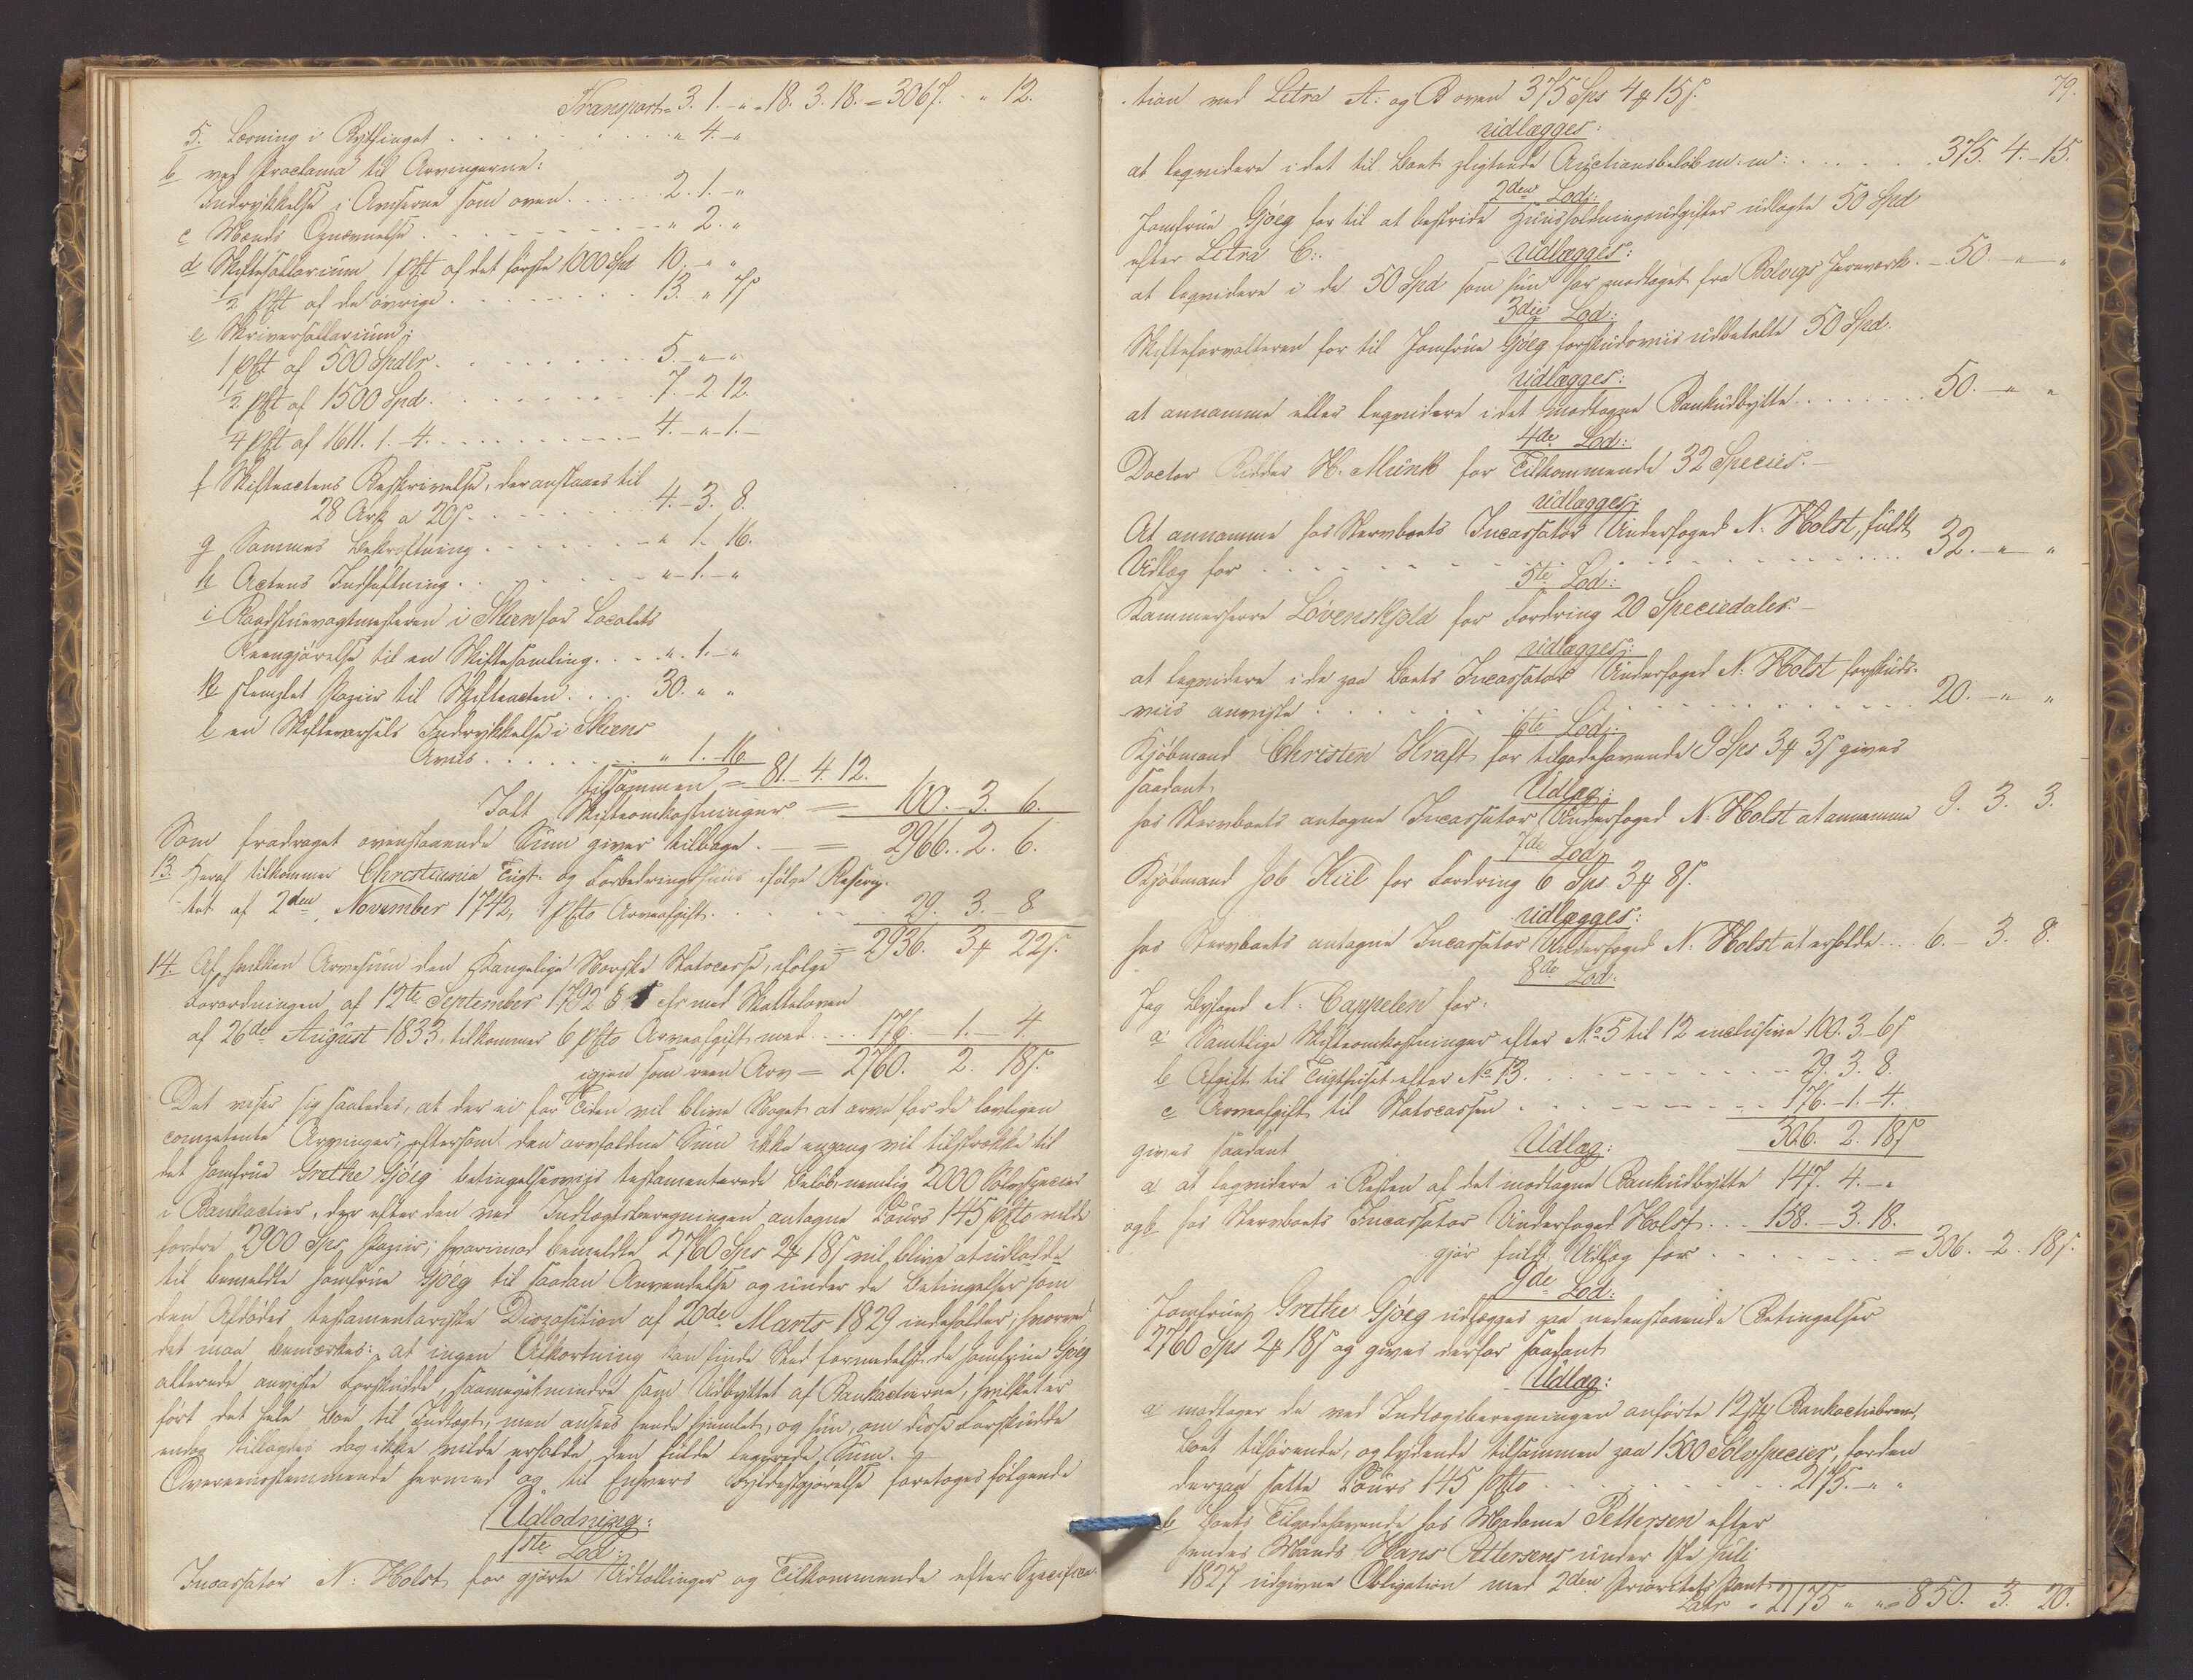 Transport = 3. 1. - " - 18. 3. 18. = 3067. - " 12.
5. Læsning i Bythinget . . . . " 4. - "
b ved Proclama til Arvingerne:
Indrykkelse i Aviserne som oven . . . . 2. 1. - "
c Mænds Opnævnelse . . . . " 2. "
d Skiftesallarium 1 pCt af det første 1000 Spd 10. - " "
1/2 pCt af de øvrige . . . . 13. " 7 s
e Skriversallarium;
1 pCt af 500 Spdlr. . . . . 5. - " - "
1/2 pCt af 1500 Spd. . . . . 7. - 2 12.
1/4 pCt af 1611. 1. - 4. . . . . 4. - " - 1. -
f Skifteactens Beskrivelse, der anslaaes til
28 Ark a 20 s. . . . . 4. - 3. 8.
g Sammes Bekræftning . . . . " 1. 16.
h Actens Indhæftning . . . . " - 1. - "
i Raadstuevagtmesteren i Skien for Localets
Reengjørelse til en Skiftesamling . . . " . 1. - "
k stemplet Papiir til Skifteacten . . . . 30. " "
l en Skiftevarsels Indrykkelse i Skiens
Aviis . . . . " 1. - 16
tilsammen = 81. - 4. 12.
Ialt Skifteomkostninger = 100. - 3. 6.
Som fradraget ovenstaaende Sum giver tilbage . - = 2966. . 2. 6.
13. Heraf tilkommer Christiania Tugt- og Forbedringshuus ifølge Rescrip-
tet af 2den November 1742, 1 pCto Arveafgift . . . . 29. 3. - 8
= 2936. 3 # 22 s.
14. Af hvilken Arvesum den Kongelige Norske Statscasse, ifølge
Forordningen af 12te September 1792 § 1 cfr med Skatteloven
af 26de August 1833, tilkommer 6 pCto Arveafgift med . . . 176. 1. - 4
igjen som reen Arv = 2760. 2. 18 s.
Det viser sig saaledes, at der ei for Tiden vil blive Noget at arve for de lovligen
competente Arvinger, eftersom den arvfaldne Sum ikke engang vil tilstrække til
det Jomfrue Grethe Gjöeg betingelsesviis testamenterede Beløb, nemlig 2000 Sølvspecies
i Bankactier, der efter den ved Indtægtsberegningen antagne Cours 145 pCto vilde
fordre 2900 Sps Papiir; hvorimod bemeldte 2760 Sps 2 # 18 s vil blive at udlodde
til bemeldte Jomfrue Gjöeg til saadan Anvendelse og under de Betingelser som
den Afdødes testamentariske Disposition af 20de Marts 1829 indeholder; hvorved
det maa bemærkes: at ingen Afkortning kan finde Sted formedelst de Jomfrue Gjöeg
allerede anviste Forskudde, saameget mindre som Udbyttet af Bankactierne, hvilket er
ført det hele Boe til Indtægt, men ansees hende hjemlet, og hun, om disse Forskudde
endog tillagdes dog ikke vilde erholde den fulde legerede Sum.
Overeensstemmende hermed og til Enhvers Fyldestgjørelse foretoges følgende
Udlodning:
1ste Lod:
Incassator N. Holst for gjorte Udtællinger og Tilkommende efter Specifica-
79.
-tion ved Litra A: og B oven 375 Sps 4 # 15 s.
udlægges:
at leqvidere i det til Boet pligtende Auctionsbeløb m: m: . . . . 375. 4. - 15.
2den Lod:
Jomfrue Gjöeg for til at bestride Huusholdningsudgifter udlagte 50 Spd
efter Litra C: udlægges:
at leqvidere i de 50 Spd som hun har modtaget fra Bolvigs Jernværk. - 50. - " - "
3die Lod:
Skifteforvalteren for til Jomfrue Gjöeg forskudsviis udbetalte 50 Spd.
udlægges:
at annamme eller leqvidere i det modtagne Bankudbytte . . . . 50. - " "
4de Lod:
Doctor Ridder H. Munk for Tilkommende 32 Species. -
udlægges:
At annamme hos Stervboets Incassator Underfoged N. Holst, fuldt
Udlæg for . . . . 32. - " - "
5te Lod:
Kammerherre Lövenskjold for Fordring 20 Speciedaler -
udlægges:
at leqvidere i de paa Boets Incassator Underfoged N. Holst forskuds-
viis anviste . . . . 20. - " "
6te Lod:
Kjøbmand Christen Kraft for tilgodehavende 9 Sps 3 # 3 s gives
saadant Udlæg:
hos Stervboets antagne Incassator Underfoged N. Holst at annamme 9. 3. 3.
7de Lod
Kjøbmand Job Kiil for Fordring 6 Sps 3 # 8 s.
udlægges:
hos Stervboets antagne Incassator Underfoged N. Holst at erholde . . 6. - 3. 8.
8de Lod:
Jeg Byfoged N. Cappelen for:
a Samtlige Skifteomkostninger efter No 5 til 12 inclusive 100. 3 - 6 s
b Afgift til Tugthuset efter No 13. . . . . 29. 3. 8.
c Arveafgift til Statscassen . . . . 176. - 1. - 4.
306. 2. 18 s
gives saadant Udlæg:
a at leqvidere i Resten af det modtagne Bankudbytte 147. 4. - "
og b. hos Stervboets Incassator Underfoged Holst . . . 158. - 3. 18.
gjør fuldt Udlæg for . . . . = 306. - 2. 18 s.
9de Lod:
Jomfrue Grethe Gjöeg udlægges paa nedenstaaende Betingelser
2760 Sps 2 # 18 s og gives derfor saadant
Udlæg:
a modtager de ved Indtægtsberegningen anførte 12 Stk Bankactiebreve,
Boet tilhørende, og lydende tilsammen paa 1500 Sølvspecier, for den
derpaa satte Cours 145 pCto . . . . 2175. - " "
b Boets Tilgodehavende hos Madame Pettersen efter
hendes Mands Hans Pettersens under 1ste Juli
1827 udgivne Obligation med 2den Prioritets Pant
Latr = 2175 " " = 850. 3. 20.